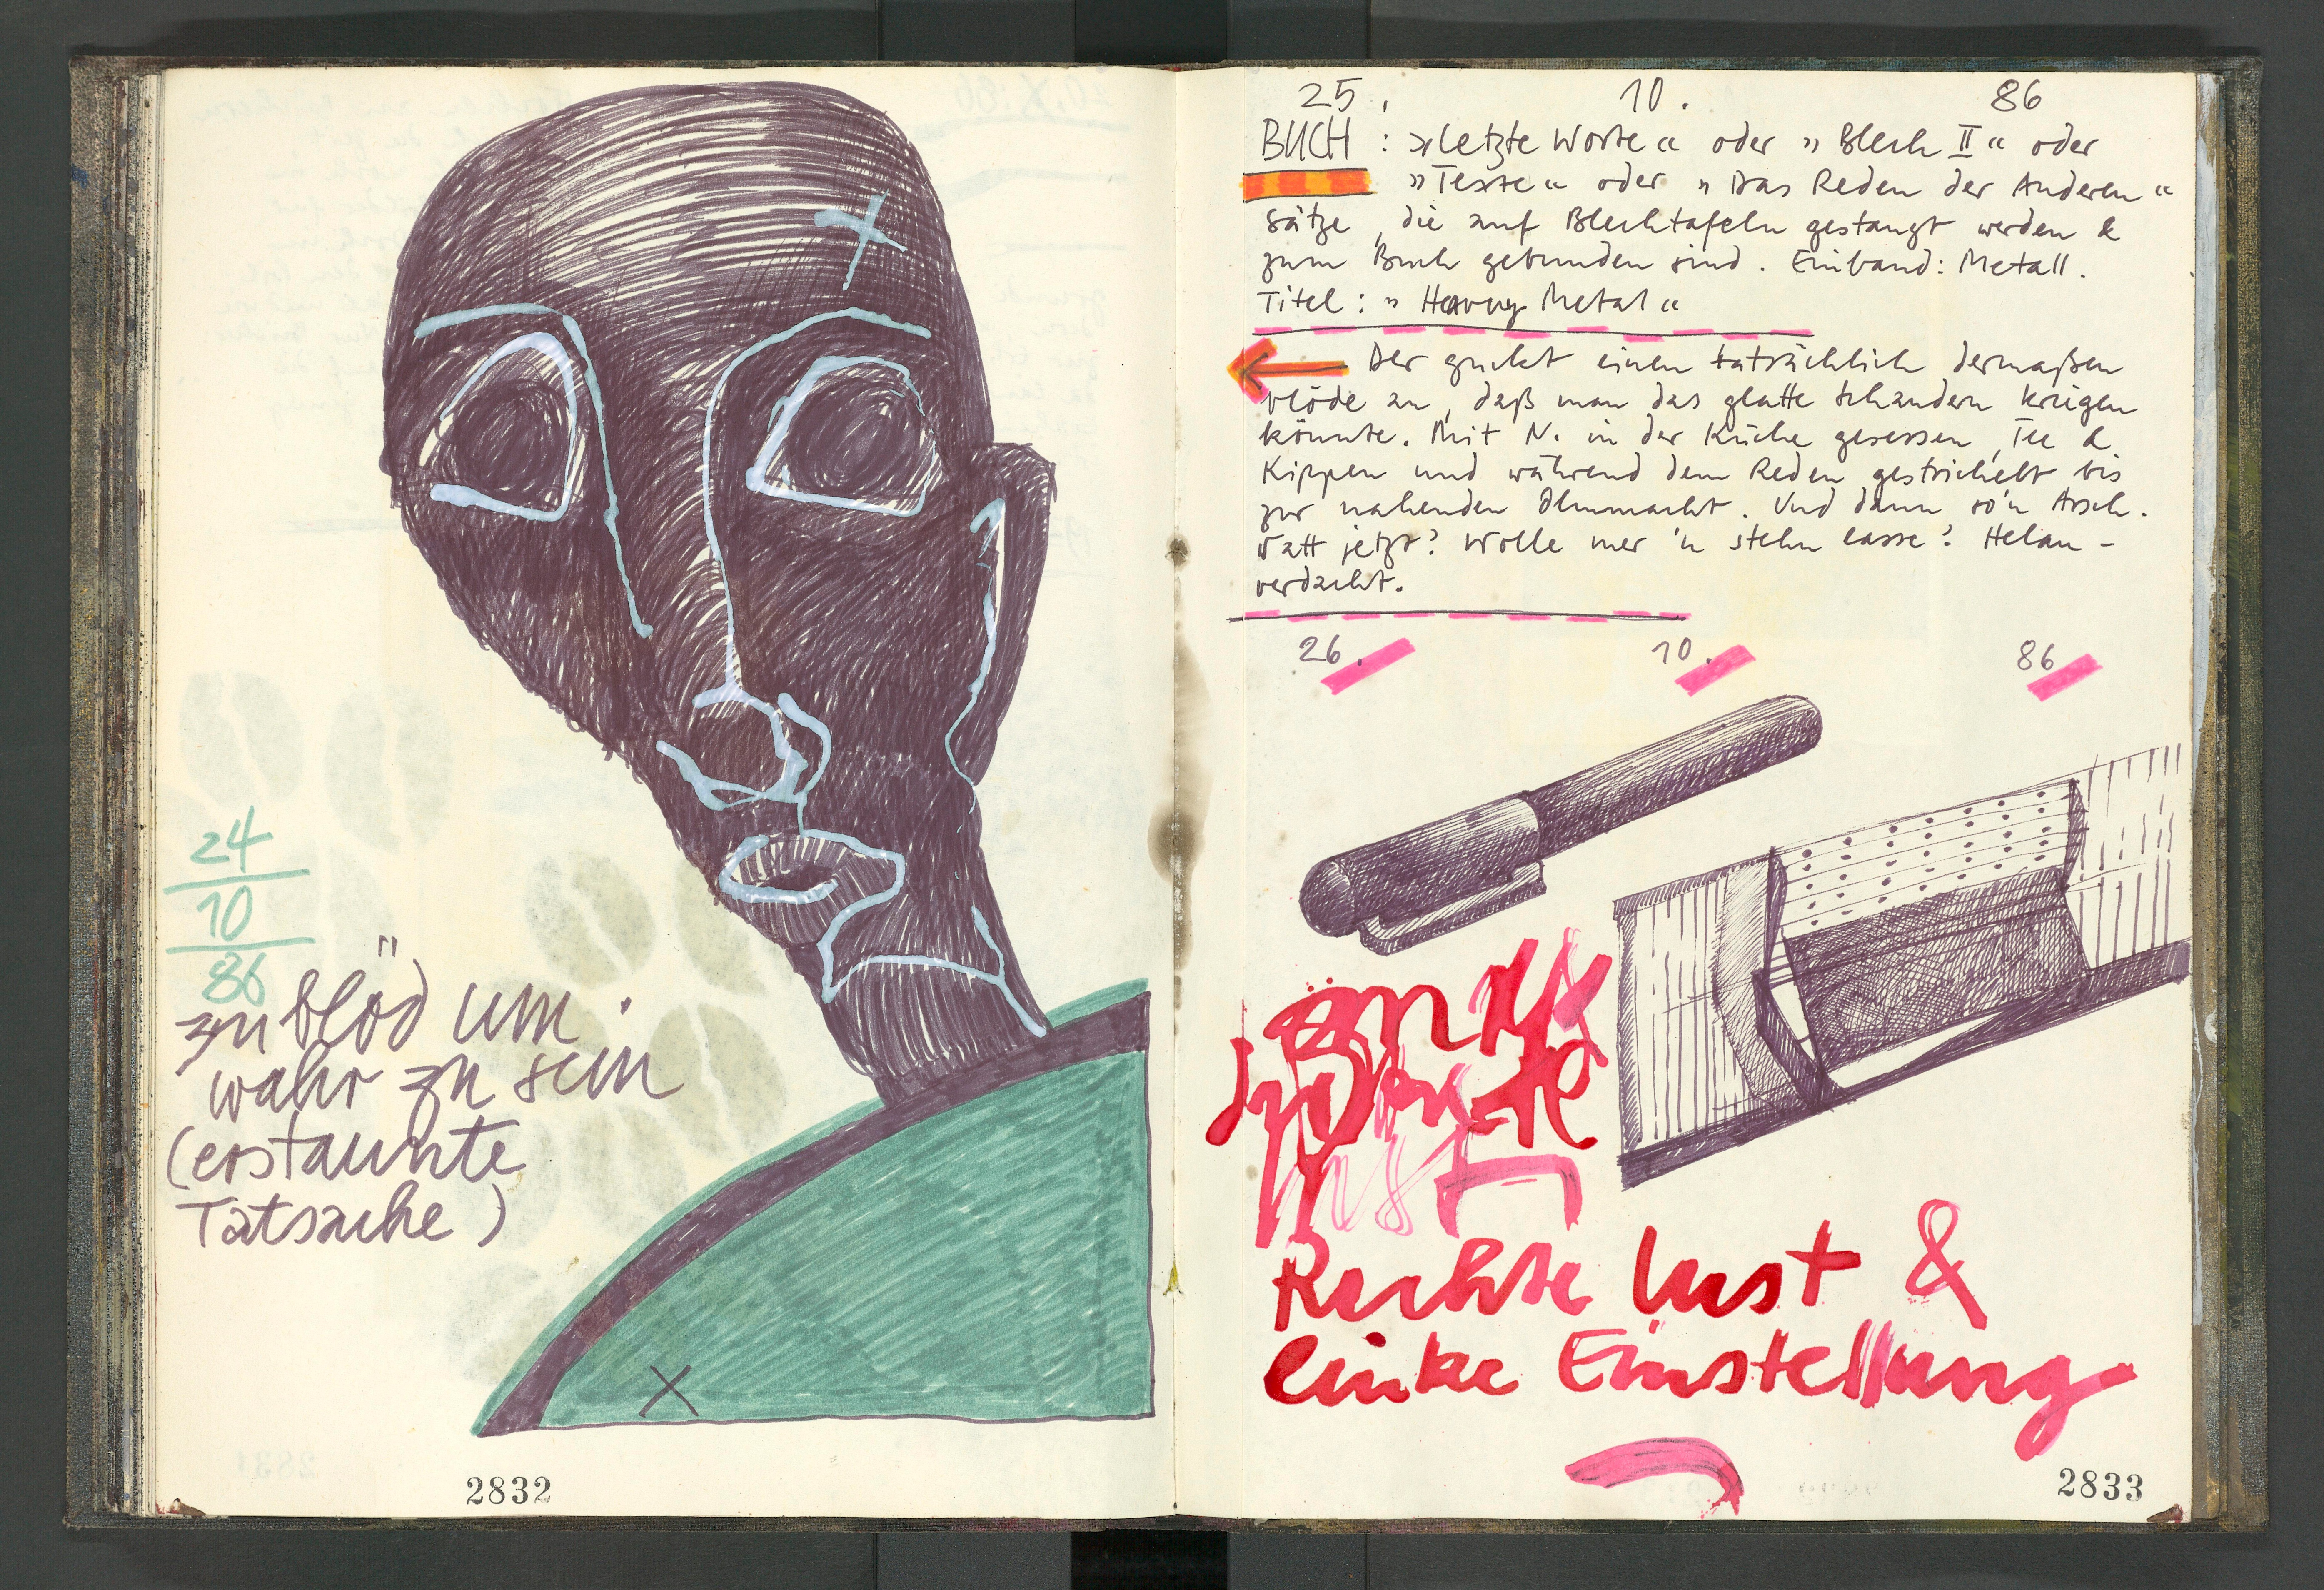 24
10
86
zu blöd um
wahr zu sein
(erstaunte
Tatsache)
2832
25. 10. 86
BUCH : »Letzte Worte« oder »Blech II« oder
»Texte« oder »Das Reden der Anderen«
Sätze, die auf Blechtafeln gestanzt werden &
zum Buch gebunden sind. Einband: Metall.
Titel: »Heavy Metal«
Der guckt einen tatsächlich dermaßen
blöde an, daß man das glatte Schaudern kriegen
könnte. Mit N. in der Küche gesessen, Tee &
Kippen und während dem Reden gestrichelt bis
zur nahenden Ohnmacht. Und dann so'n Arsch.
Watt jetzt? Wolle mer 'n stehn lasse? Helau-
verdacht.
26. 10. 86
Rechte Lust &
linke Einstellung
2833